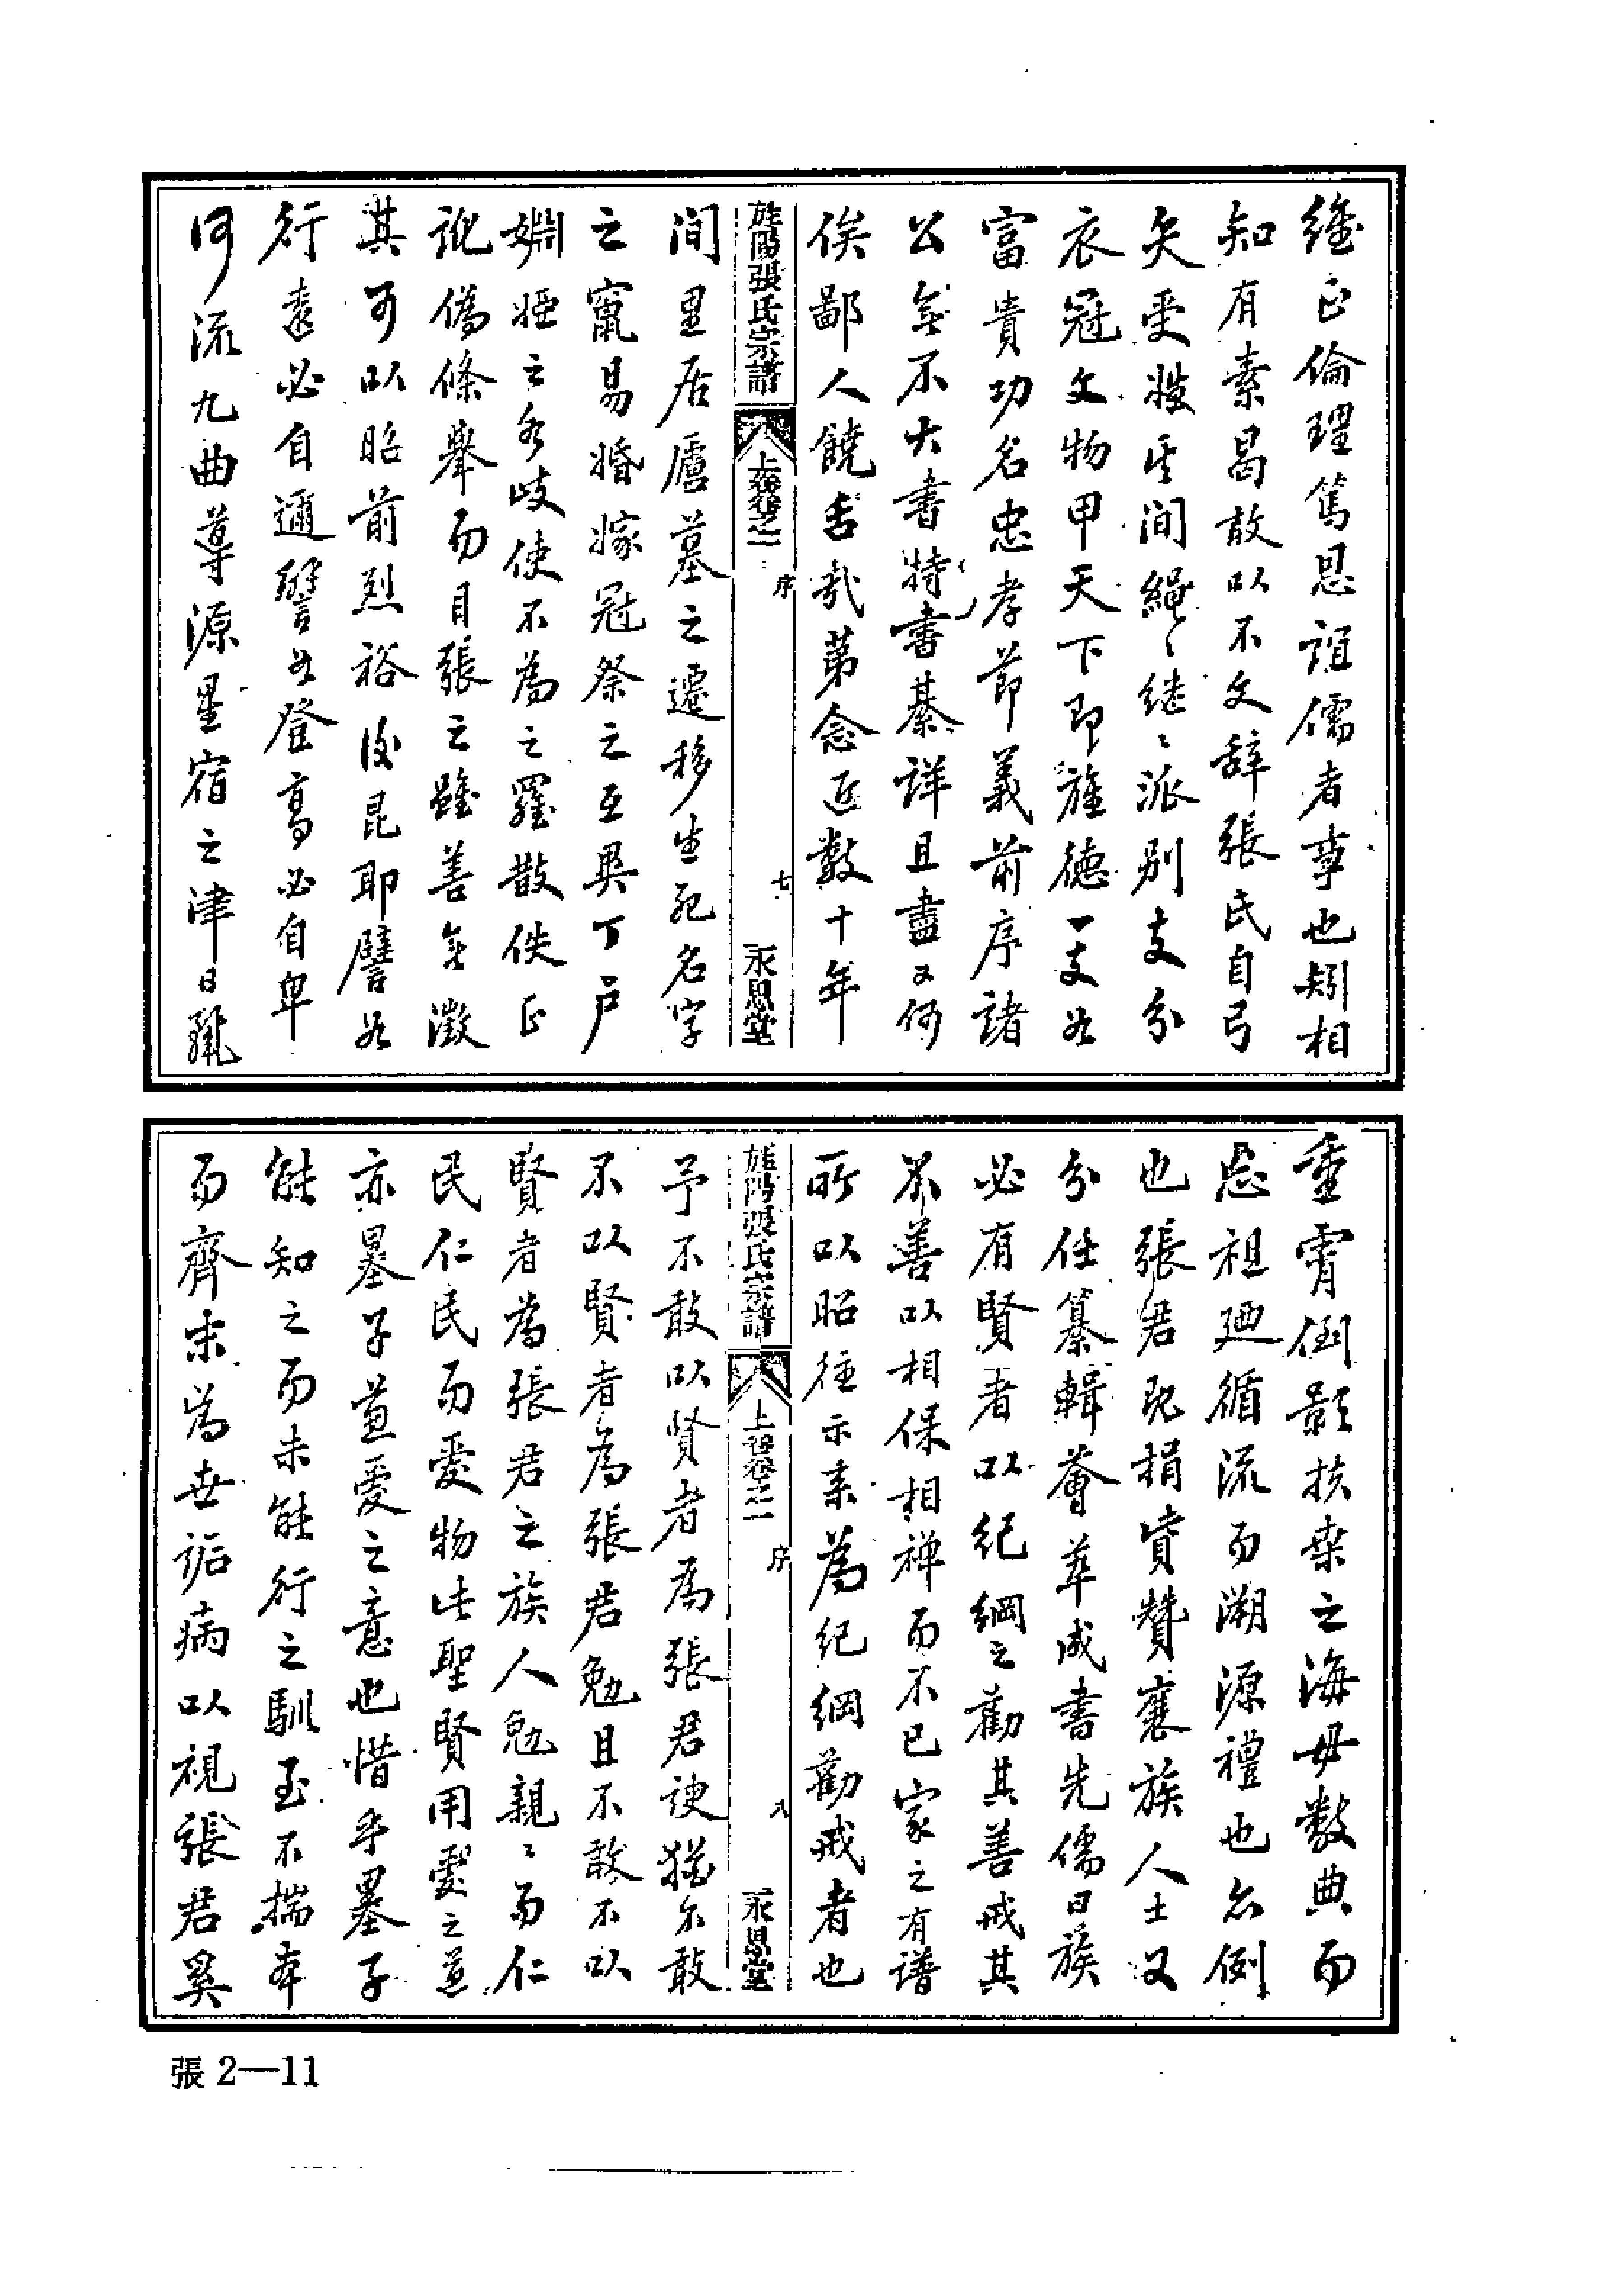 緣正倫理篤恩誼儒者事也矧相
知有素曷敢以不文辭張氏自弓
矢受姓其間繩〻继〻派别支分
衣冠文物甲天下即旌德一支如
富貴功名忠孝節義前序諸
公無不大書特書綦詳且盡又何
俟鄙人饒舌哉第念近數十年
旌陽張氏宗譜 上卷卷之一 序 七 永思堂
间里居廬墓之遷移生死名字
之竄易婚嫁冠祭之互異丁户
婣婭之多岐使不為之羅散佚正
訛偽條舉而目張之雖善無徵
其可以昭前烈裕後昆耶譬如
行遠必自邇譬如登高必自卑
河流九曲導源星宿之津日躔
重霄倒影扶桒之海毋數典而
忘祖廻循流而溯源禮也亦例
也張君既捐貲贊襄族人士又
分任纂輯薈萃成書先儒曰族
必有賢者以紀綱之勸其善戒其
不善以相保相禅而不已家之有谱
所以昭往示来為纪綱勸戒者也
旌陽張氏宗譜 上卷卷之一 序 八 永思堂
予不敢以贤者為張君諛猶尔敢
不以賢者為張君勉且不敢不以
賢者為張君之族人勉親〻而仁
民仁民而愛物此聖賢用愛之道
亦墨子兼愛之意也惜乎墨子
能知之而未能行之馴至不揣本
而齊末為世詬病以視張君奚
張 2—11